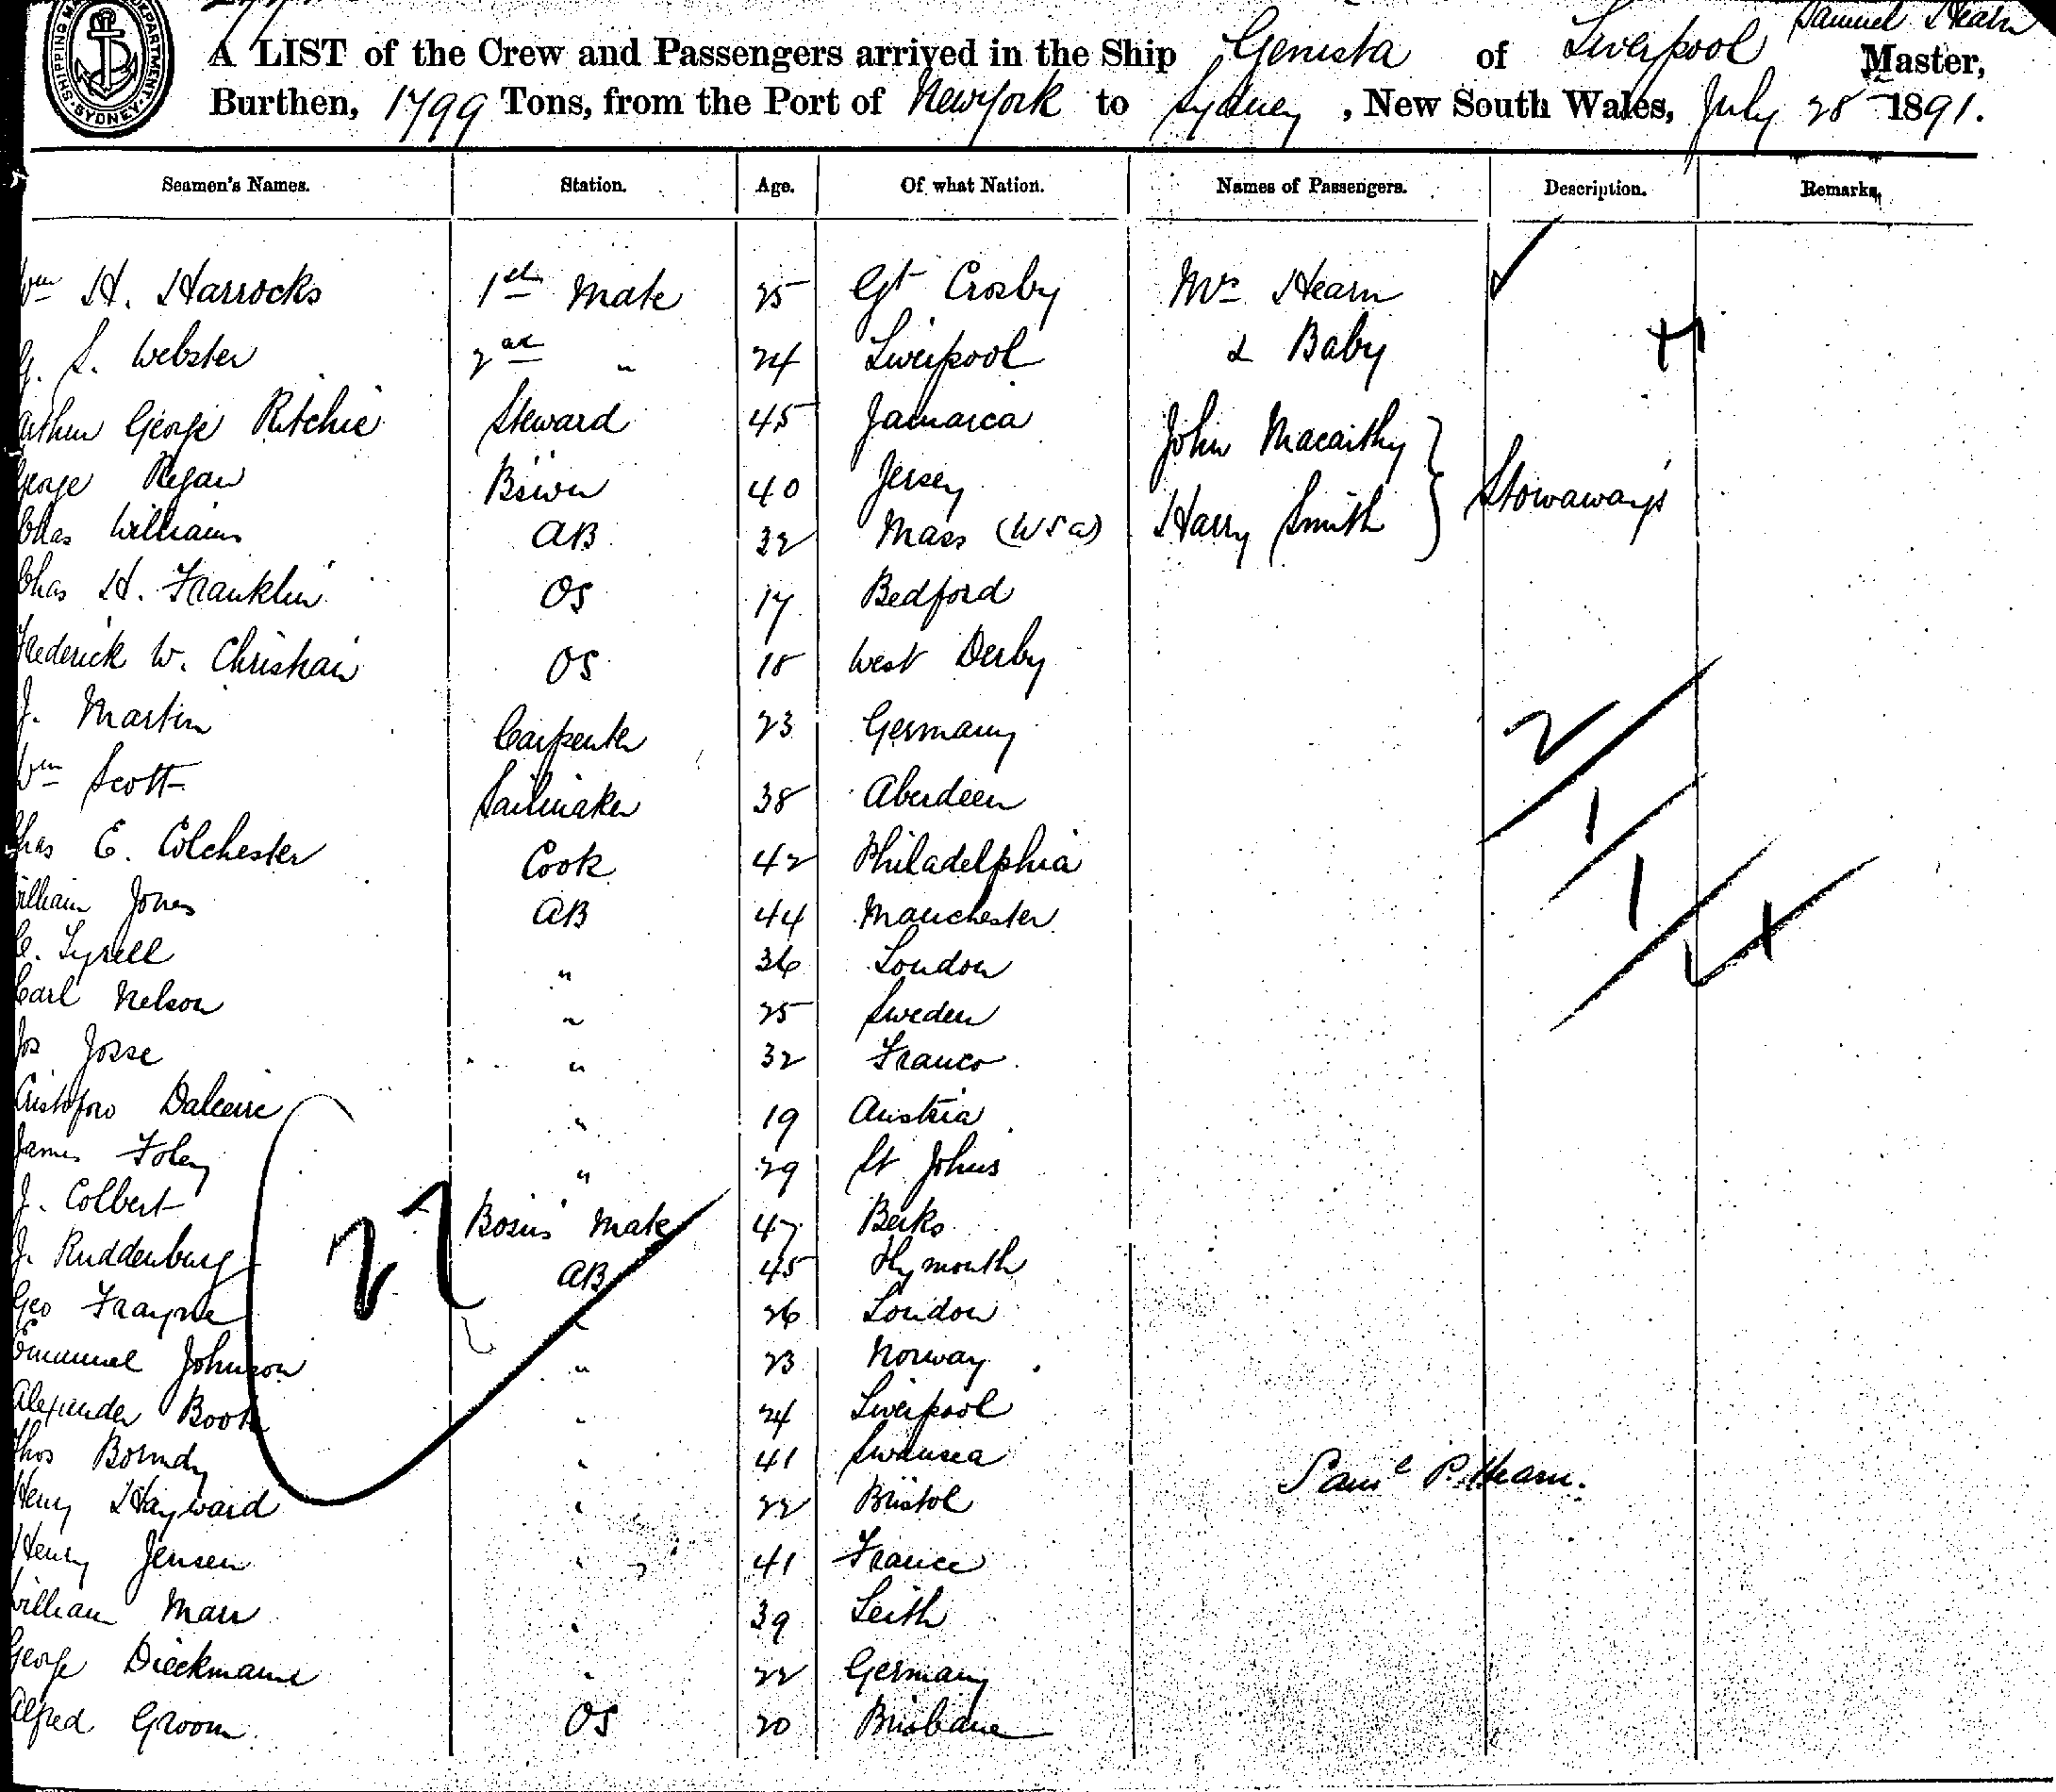 SHIPPING MA DEPARTMENT. SYDNEY.
Samuel Hearn
A LIST of the Crew and Passengers arrived in the Ship Genista of Liverpool Master,
Burthen, 1799 Tons, from the Port of New York to Sydney, New South Wales, July 28th 1891.
Seamen's Names. Station. Age. Of what Nation. Names of Passengers. Description. Remarks,
Wm H. Harrocks 1st Mate 25 Gt Crosby Mrs Hearn
G. S. Webster 2nd " 24 Liverpool & Baby
Arthur George Ritchie Steward 45 Jamaica John Macarthy
George Regan Bswn 40 Jersey Stowaways
Chas Williams AB 32 Mass (USA) Harry Smith
Chas H. Franklin OS 17 Bedford
Frederick W. Christian OS 18 West Derby
J. Martin Carpenter 23 Germany 2
Wm Scott Sailmaker 38 Aberdeen 1
Chas E. Colchester Cook 42 Philadelphia 1
William Jones AB 44 Manchester 1
C. Tyrell " 36 London
Carl Nelson " 25 Sweden
Jos Josse " 32 France
Cristoforo " 19 Austria
James Foley " 29 St Johns
J. Colbert Bosns Mate 47 Berks
27
J. Ruddenburg AB 45 Plymouth
Geo Frayne " 26 London
Emanuel Johnson " 23 Norway
Alexander Booth " 24 Liverpool
Thos " 41 Swansea
Saml P. Hearn.
Henry Hayward " 22 Bristol
Henry Jensen " 41 France
William Marr " 39 Leith
George Dieckmann " 22 Germany
Alfred Groom. OS 20 Brisbane